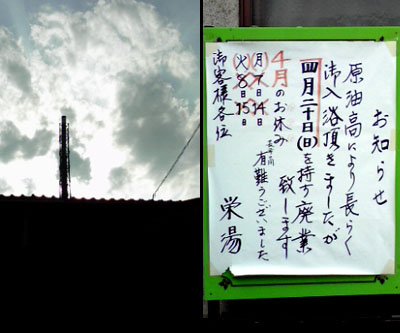 お知らせ
原油高により長らく
御入浴頂きましたが
四月二十日(日)を持す廃業
致します
長年間
有難うございました
栄湯
4月のお休み
(月)7日14日
(火)8日15日
御客様各位